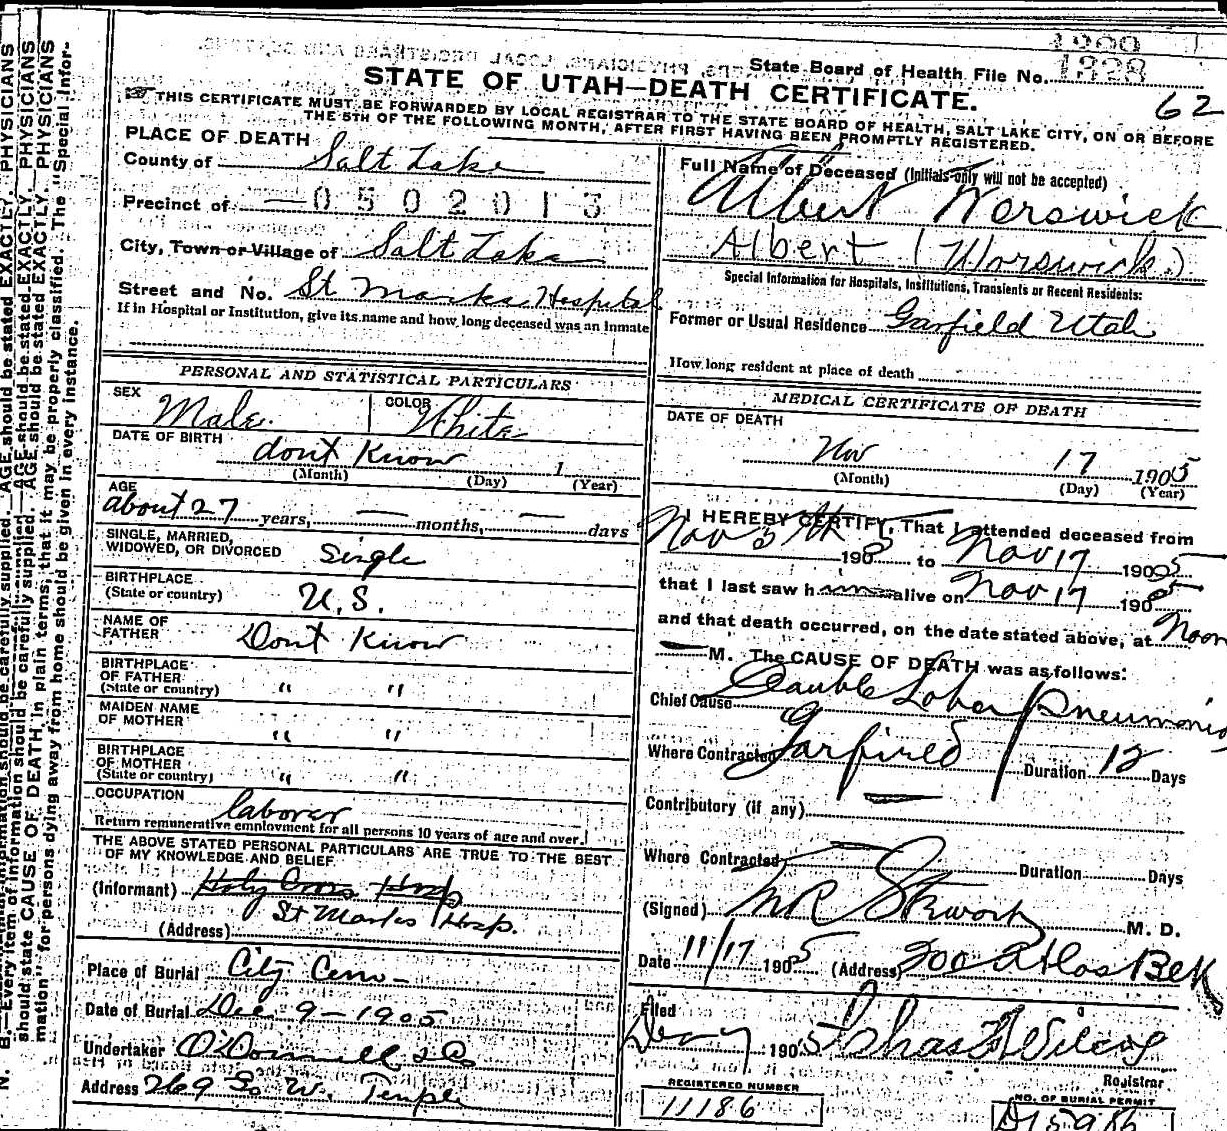 State Board of Health File No. 1928
62
STATE OF UTAH—DEATH CERTIFICATE.
THIS CERTIFICATE MUST BE FORWARDED BY LOCAL REGISTRAR TO THE STATE BOARD OF HEALTH, SALT LAKE CITY, ON OR BEFORE
THE 5TH OF THE FOLLOWING MONTH, AFTER FIRST HAVING BEEN PROMPTLY REGISTERED.
PLACE OF DEATH
County of Salt Lake
Precinct of 0502013
City, Town or Village of Salt Lake
Street and No. St Marks Hospital
If in Hospital or Institution, give its name and how long deceased was an Inmate
Full Name of Deceased (Initials only will not be accepted)
Albert Worswick
Albert (Worswick)
Special Information for Hospitals, Institutions, Transients or Recent Residents:
Former or Usual Residence Garfield Utah
How long resident at place of death
PERSONAL AND STATISTICAL PARTICULARS
SEX Male COLOR White
DATE OF BIRTH dont Know 1
(Month) (Day) (Year)
AGE
about 27 years, — months, — days
SINGLE, MARRIED,
WIDOWED, OR DIVORCED Single
BIRTHPLACE
(State or country) U.S.
NAME OF
FATHER Dont Know
BIRTHPLACE
OF FATHER
(State or country) " "
MAIDEN NAME
OF MOTHER " "
BIRTHPLACE
OF MOTHER
(State or country) " "
OCCUPATION laborer
Return remunerative employment for all persons 10 years of age and over.
THE ABOVE STATED PERSONAL PARTICULARS ARE TRUE TO THE BEST
OF MY KNOWLEDGE AND BELIEF
(Informant) Holy Cross Hosp
St Marks Hosp.
(Address)
Place of Burial City Cem-
Date of Burial Dec 9-1905
Undertaker O'Donnell & Co
Address 269 So W. Temple
MEDICAL CERTIFICATE OF DEATH
DATE OF DEATH
Nov 17 1905
(Month) (Day) (Year)
I HEREBY CERTIFY, That I attended deceased from
Nov 5th 190 to Nov 17 1905
that I last saw him alive on Nov 17 1905
and that death occurred, on the date stated above, at Noon
— M. The CAUSE OF DEATH was as follows:
Chief Cause Double Lobar Pneumonia
Where Contracted Garfield Duration 12 Days
Contributory (if any) —
Where Contracted Duration Days
(Signed) M. D.
Date 11/17 1905 (Address) 200 Atlas Blk
Filed
Dec 7 1905 Chas F Wilcox
Registrar
REGISTERED NUMBER
11186
NO. OF BURIAL PERMIT
N. B.—Every item of information should be carefully supplied. AGE should be stated EXACTLY. PHYSICIANS
should state CAUSE OF DEATH in plain terms, that it may be properly classified. The "Special Infor-
mation" for persons dying away from home should be given in every instance.